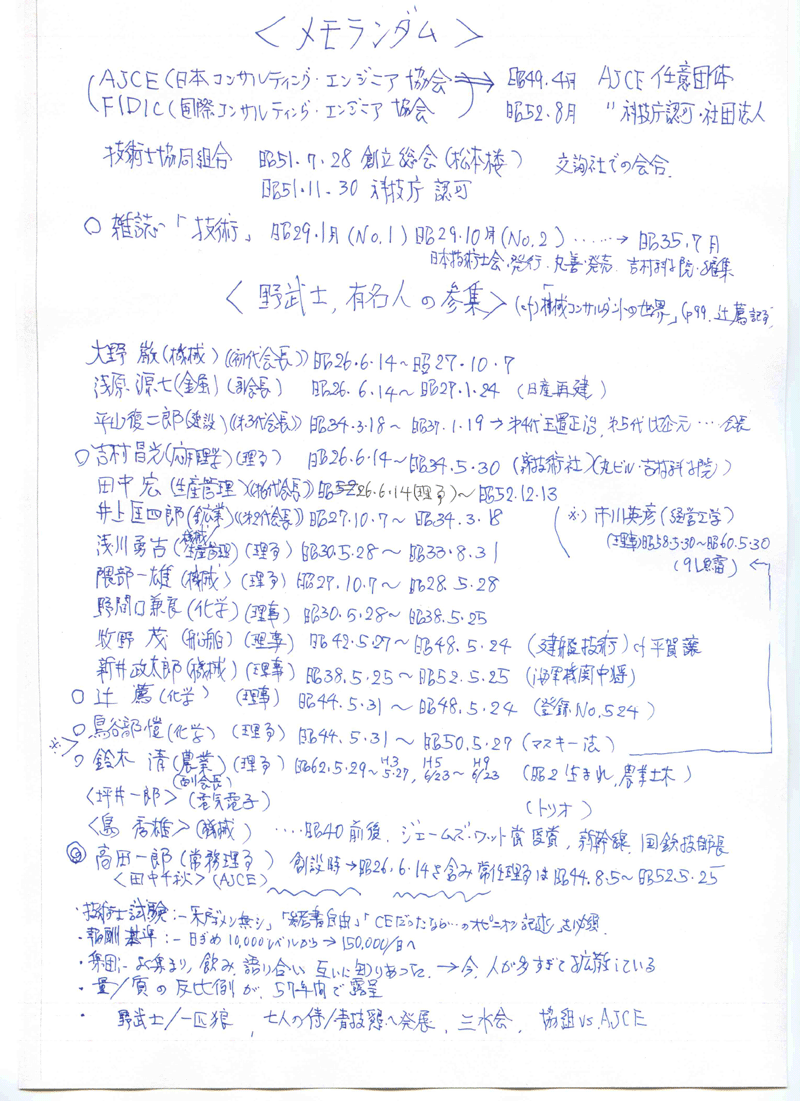 ＜メモランダム＞
AJCE (日本コンサルティング・エンジニア協会 ⇒ 昭49.4月 AJCE 任意団体
FIDIC (国際コンサルティング・エンジニア協会) 昭52.8月 〃 科技庁認可・社団法人
技術士協同組合 昭51.7.28 創立総会(松本楼) 交詢社での会合.
昭51.11.30 科技庁 認可
○ 雑誌「技術」 昭29.1月(No.1) 昭29.10月(No.2) ……→ 昭35.7月
日本技術士会・発行. 丸善・発売. 吉村科学院・編集
＜野武士, 有名人の参集＞(cf)「機械コンサルタントの世界」(p99. 辻薦記す)
大野 巌(機械)(初代会長) 昭26.6.14～昭27.10.7
浅原源七(金属)(副会長) 昭26.6.14～昭27.1.24 (日産再建)
平山復二郎(建設)(才3代会長) 昭34.3.18～昭37.1.19→才4代玉置正治, 才5代 … 会長
○吉村昌光(応用理学)(理事) 昭26.6.14～昭34.5.30 (新技術社)(丸ビル・吉村科学院)
田中 宏(生産管理) 26.6.14(理事)～昭52.12.13
井上匡四郎(鉱業)(才2代会長) 昭27.10.7～昭34.3.18
※) 市川英彦(経営工学)
(理事)昭58.5.30～昭60.5.30
浅川勇吉(機械/生産管理)(理事) 昭30.5.28～昭33.8.31
隈部一雄(機械)(理事) 昭27.10.7～昭28.5.28
野間口兼良(化学)(理事) 昭30.5.28～昭38.5.25
牧野 茂(船舶)(理事) 昭42.5.27～昭48.5.24 (建艦技術) cf 平賀譲
新井政太郎(機械)(理事) 昭38.5.25～昭52.5.25 (海軍機関中将)
○辻 薦(化学) (理事) 昭44.5.31～昭48.5.24 (登録No.524)
○鳥谷部恺(化学)(理事) 昭44.5.31～昭50.5.27 (マスキー法)
※＞
○鈴木 清(農業)(理事) 昭62.5.29～H3 5.27, H5 6/23～H9 6/23 (昭2生まれ, 農業土木)
(副会長)
＜坪井一郎＞(電気電子) (トリオ)
＜島 秀雄＞(機械) ‥‥昭40前後. ジェームズ・ワット賞受賞, 新幹線, 国鉄技師長
◎ 高田一郎(常務理事) 創設時→昭26.6.14を含み 常任理事は昭44.8.5～昭52.5.25
＜田中千秋＞(AJCE)
・技術士試験:
・報酬基準:－日ぎめ 10,000レベルから→150,000/日へ
・集団:－よく集まり, 飲み, 語り合い 互いに知りあった. →今, 人が多すぎて拡散している
・量/質の反比例が, 57年間で露呈
・ 野武士/一匹狼, 七人の侍/青技懇へ発展, 三水会, 協組vs.AJCE